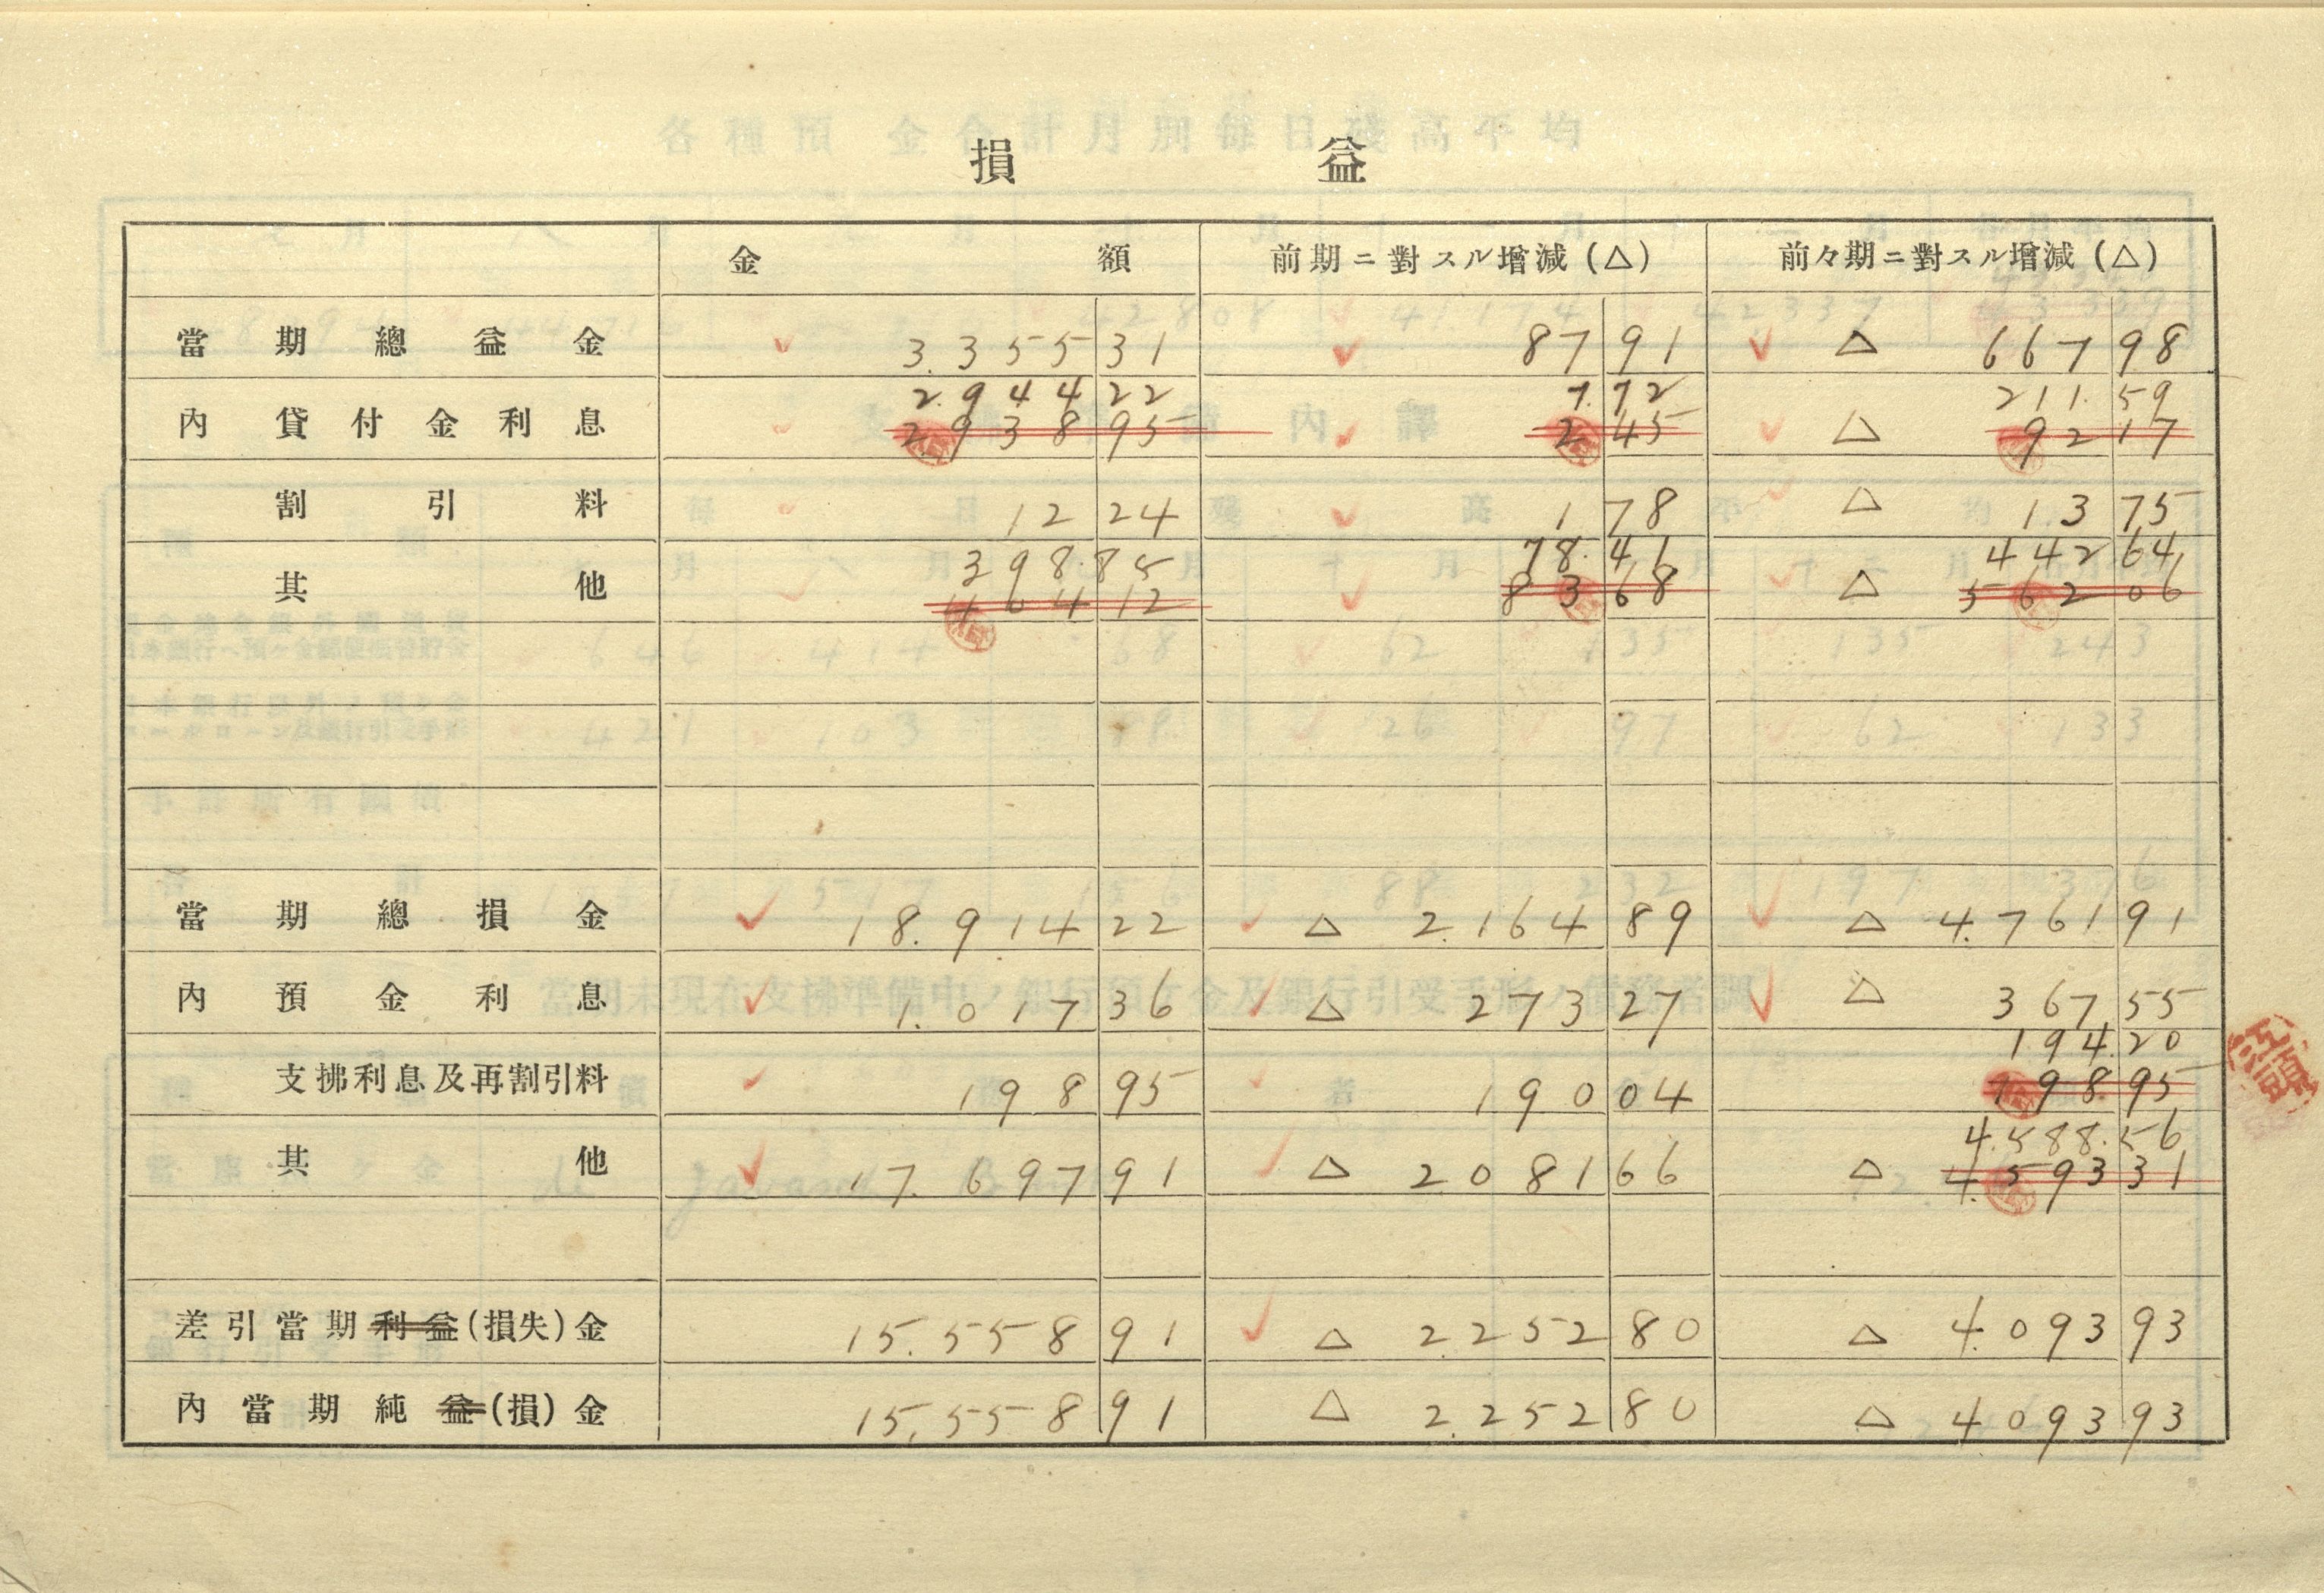 損益
金額 前期ニ對スル增減(△) 前々期ニ對スル增減(△)
當期總益金 3.355 31 87 91 △ 667 98
2.944 22 7.72 211.59
內貸付金利息 2.938 95 2 45 △ 92 17
割引料 12 24 1 78 △ 13 75
398.85 78.41 442 64
其他 404 12 83 68 △ 562 06
當期總損金 18.914 22 △ 2.164 89 △ 4.761 91
內預金利息 1.017 36 △ 273 27 △ 367 55
194.20
支拂利息及再割引料 198 95 190 04 198 95
4.588.56
其他 17.697 91 △ 2081 66 △ 4.593 31
差引當期利益(損失)金 15.558 91 △ 2.252 80 △ 4.093 93
內當期純益(損)金 15.558 91 △ 2.252 80 △ 4093 93